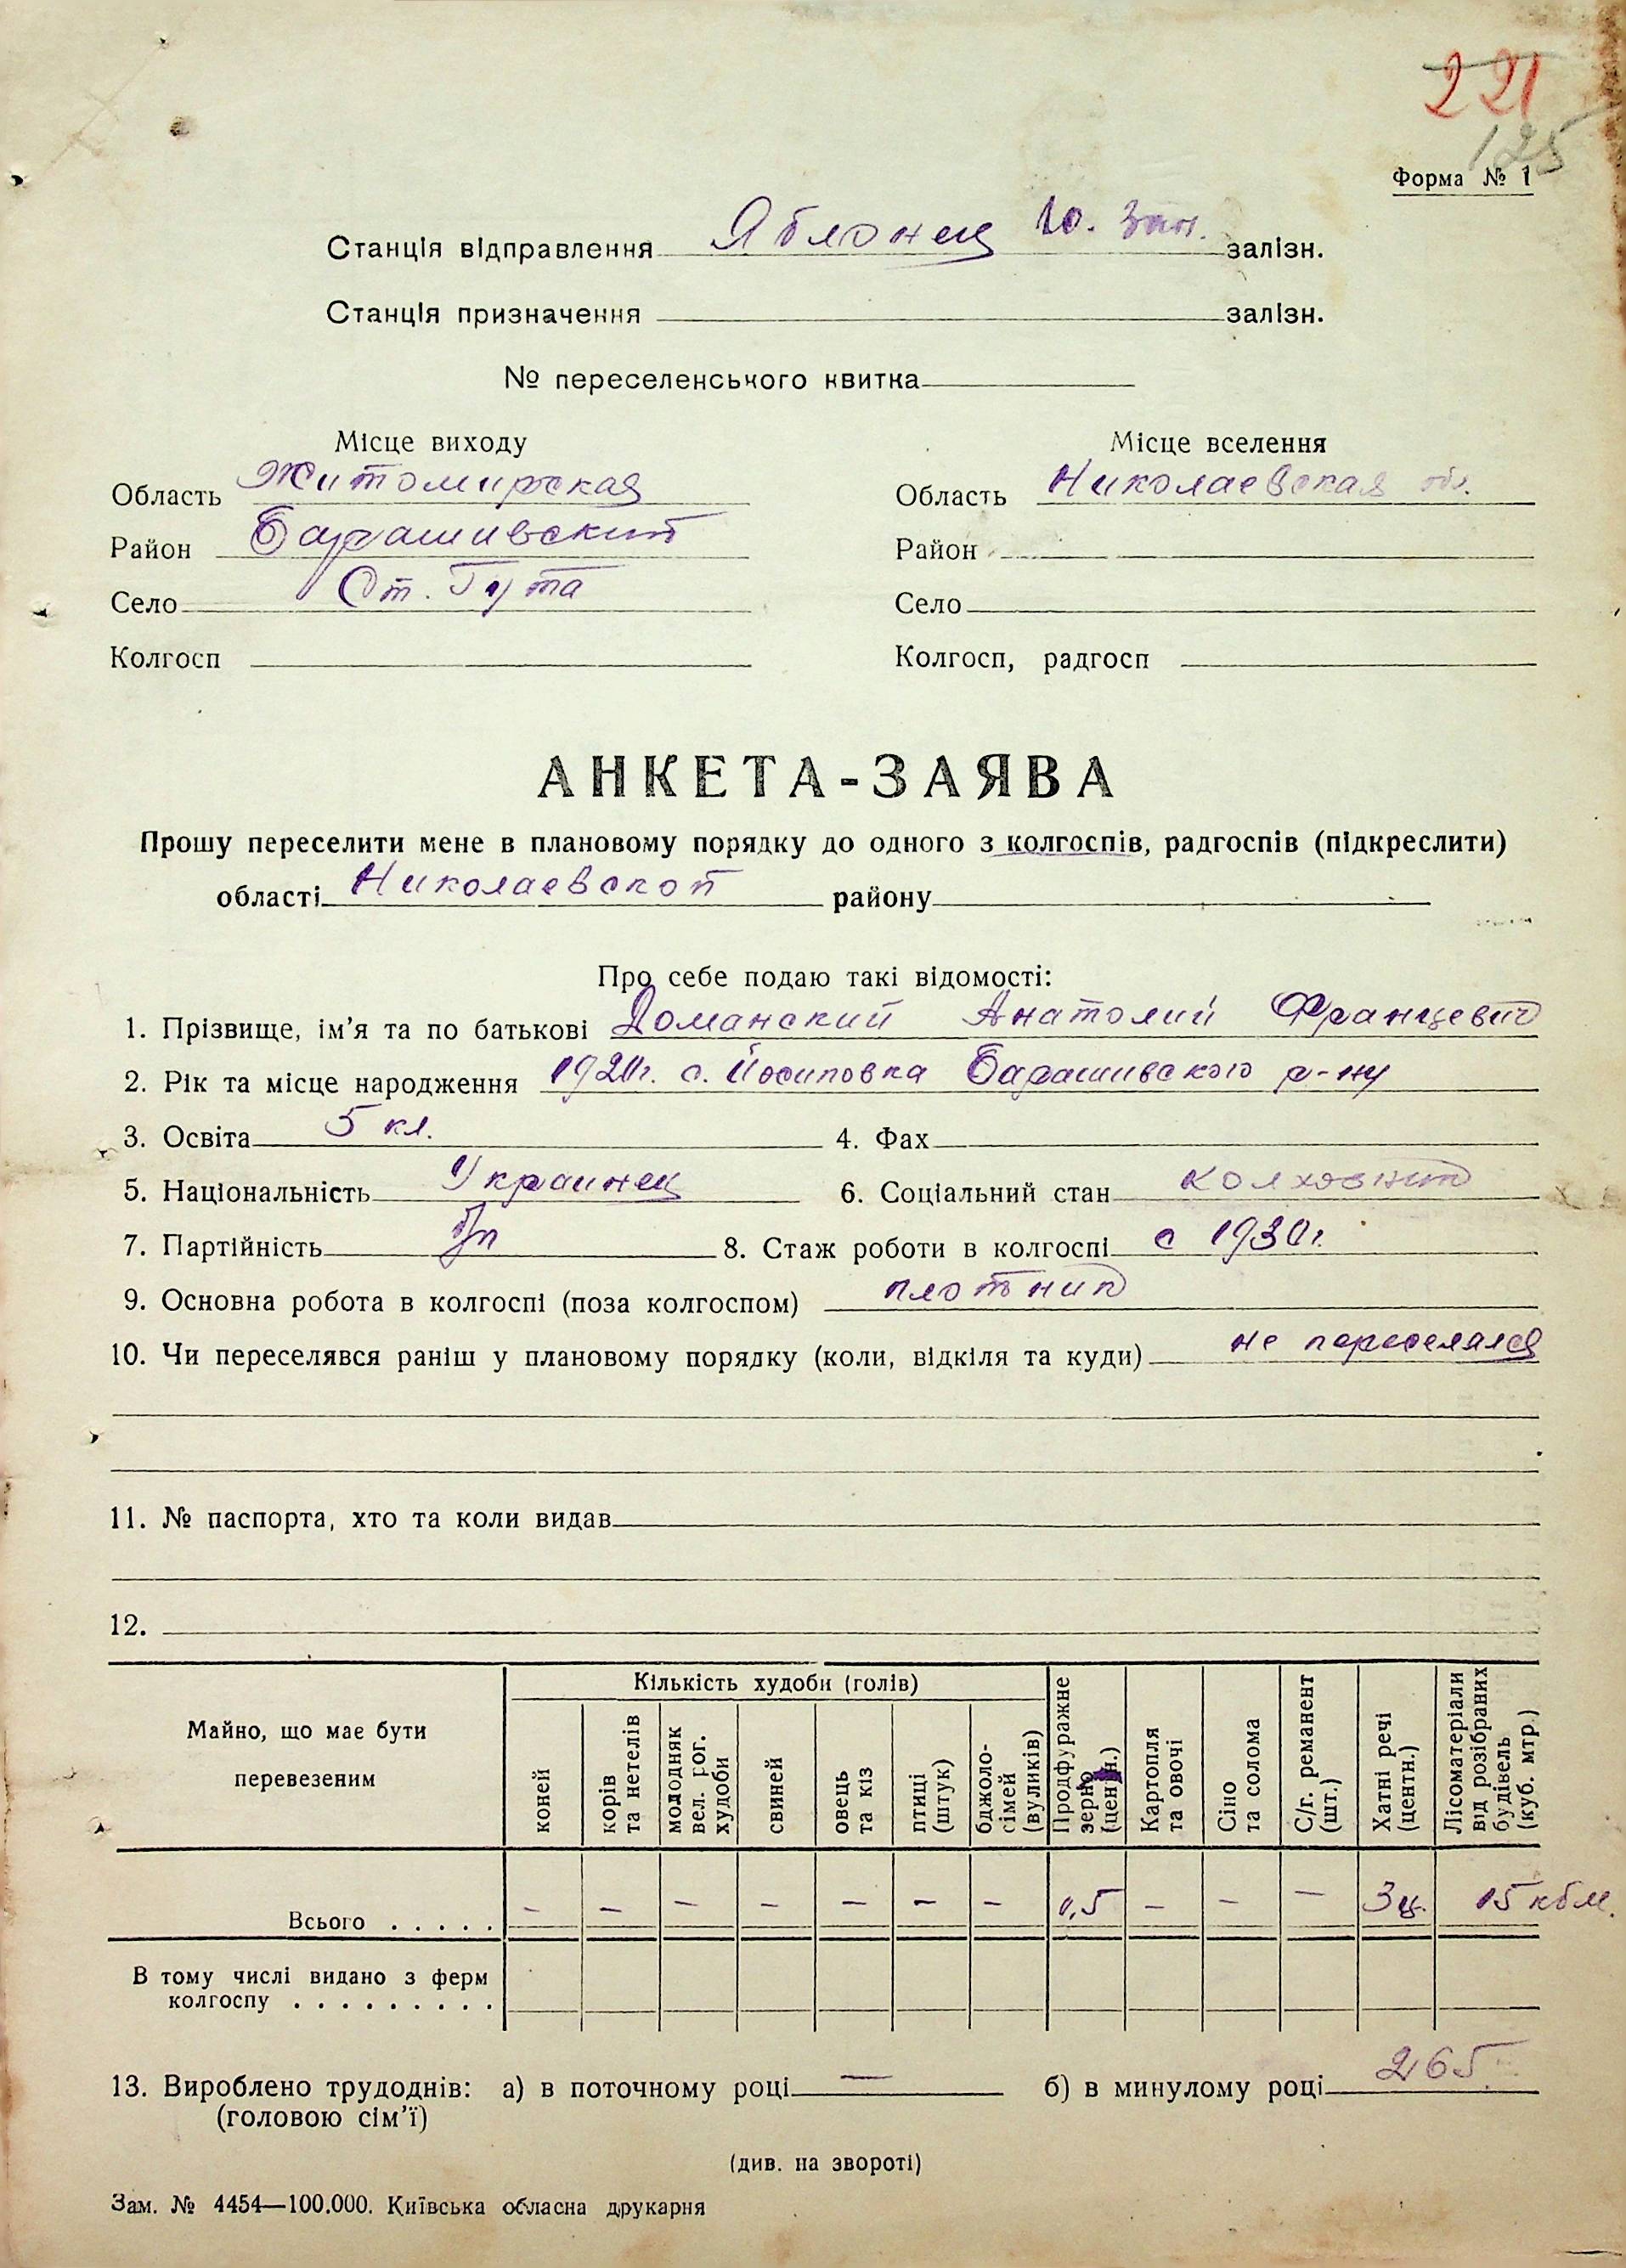 221
125
Форма № 1
Станція відправлення Яблонец Ю. Зап. залізн.
Станція призначення залізн.
№ переселенського квитка
Місце виходу Місце вселення
Область Житомирская Область Николаевская обл.
Район Барашивский Район
Село Ст. Гута Село
Колгосп Колгосп, радгосп
АНКЕТА-ЗАЯВА
Прошу переселити мене в плановому порядку до одного з колгоспів, радгоспів (підкреслити)
області Николаевской району
Про себе подаю такі відомості:
1. Прізвище, ім’я та по батькові Доманский Анатолий Францевич
2. Рік та місце народження 1920г. с. Йосиповка Барашивского р-ну
3. Освіта 5 кл. 4. Фах
5. Національність Украинец 6. Соціальний стан колхозник
7. Партійність б/п 8. Стаж роботи в колгоспі с 1930г.
9. Основна робота в колгоспі (поза колгоспом) плотник
10. Чи переселявся раніш у плановому порядку (коли, відкіля та куди) не переселялся
11. № паспорта, хто та коли видав
12.
Майно, що має бути перевезеним
Кількість худоби (голів)
коней
корів та нетелів
молодняк вел. рог. худоби
свиней
овець та кіз
птиці (штук)
бджоло-сімей (вуликів)
Продфуражне зерно (центн.)
Картопля та овочі
Сіно та солома
С/г. реманент (шт.)
Хатні речі (центн.)
Лісоматеріали від розібраних будівель (куб. мтр.)
Всього . . . . . – – – – – – – 0,5 – – – 3 ц. 15 кбм.
В тому числі видано з ферм
колгоспу . . . . . . . . .
13. Вироблено трудоднів: а) в поточному році — б) в минулому році 265
(головою сім’ї)
(див. на звороті)
Зам. № 4454—100.000. Київська обласна друкарня